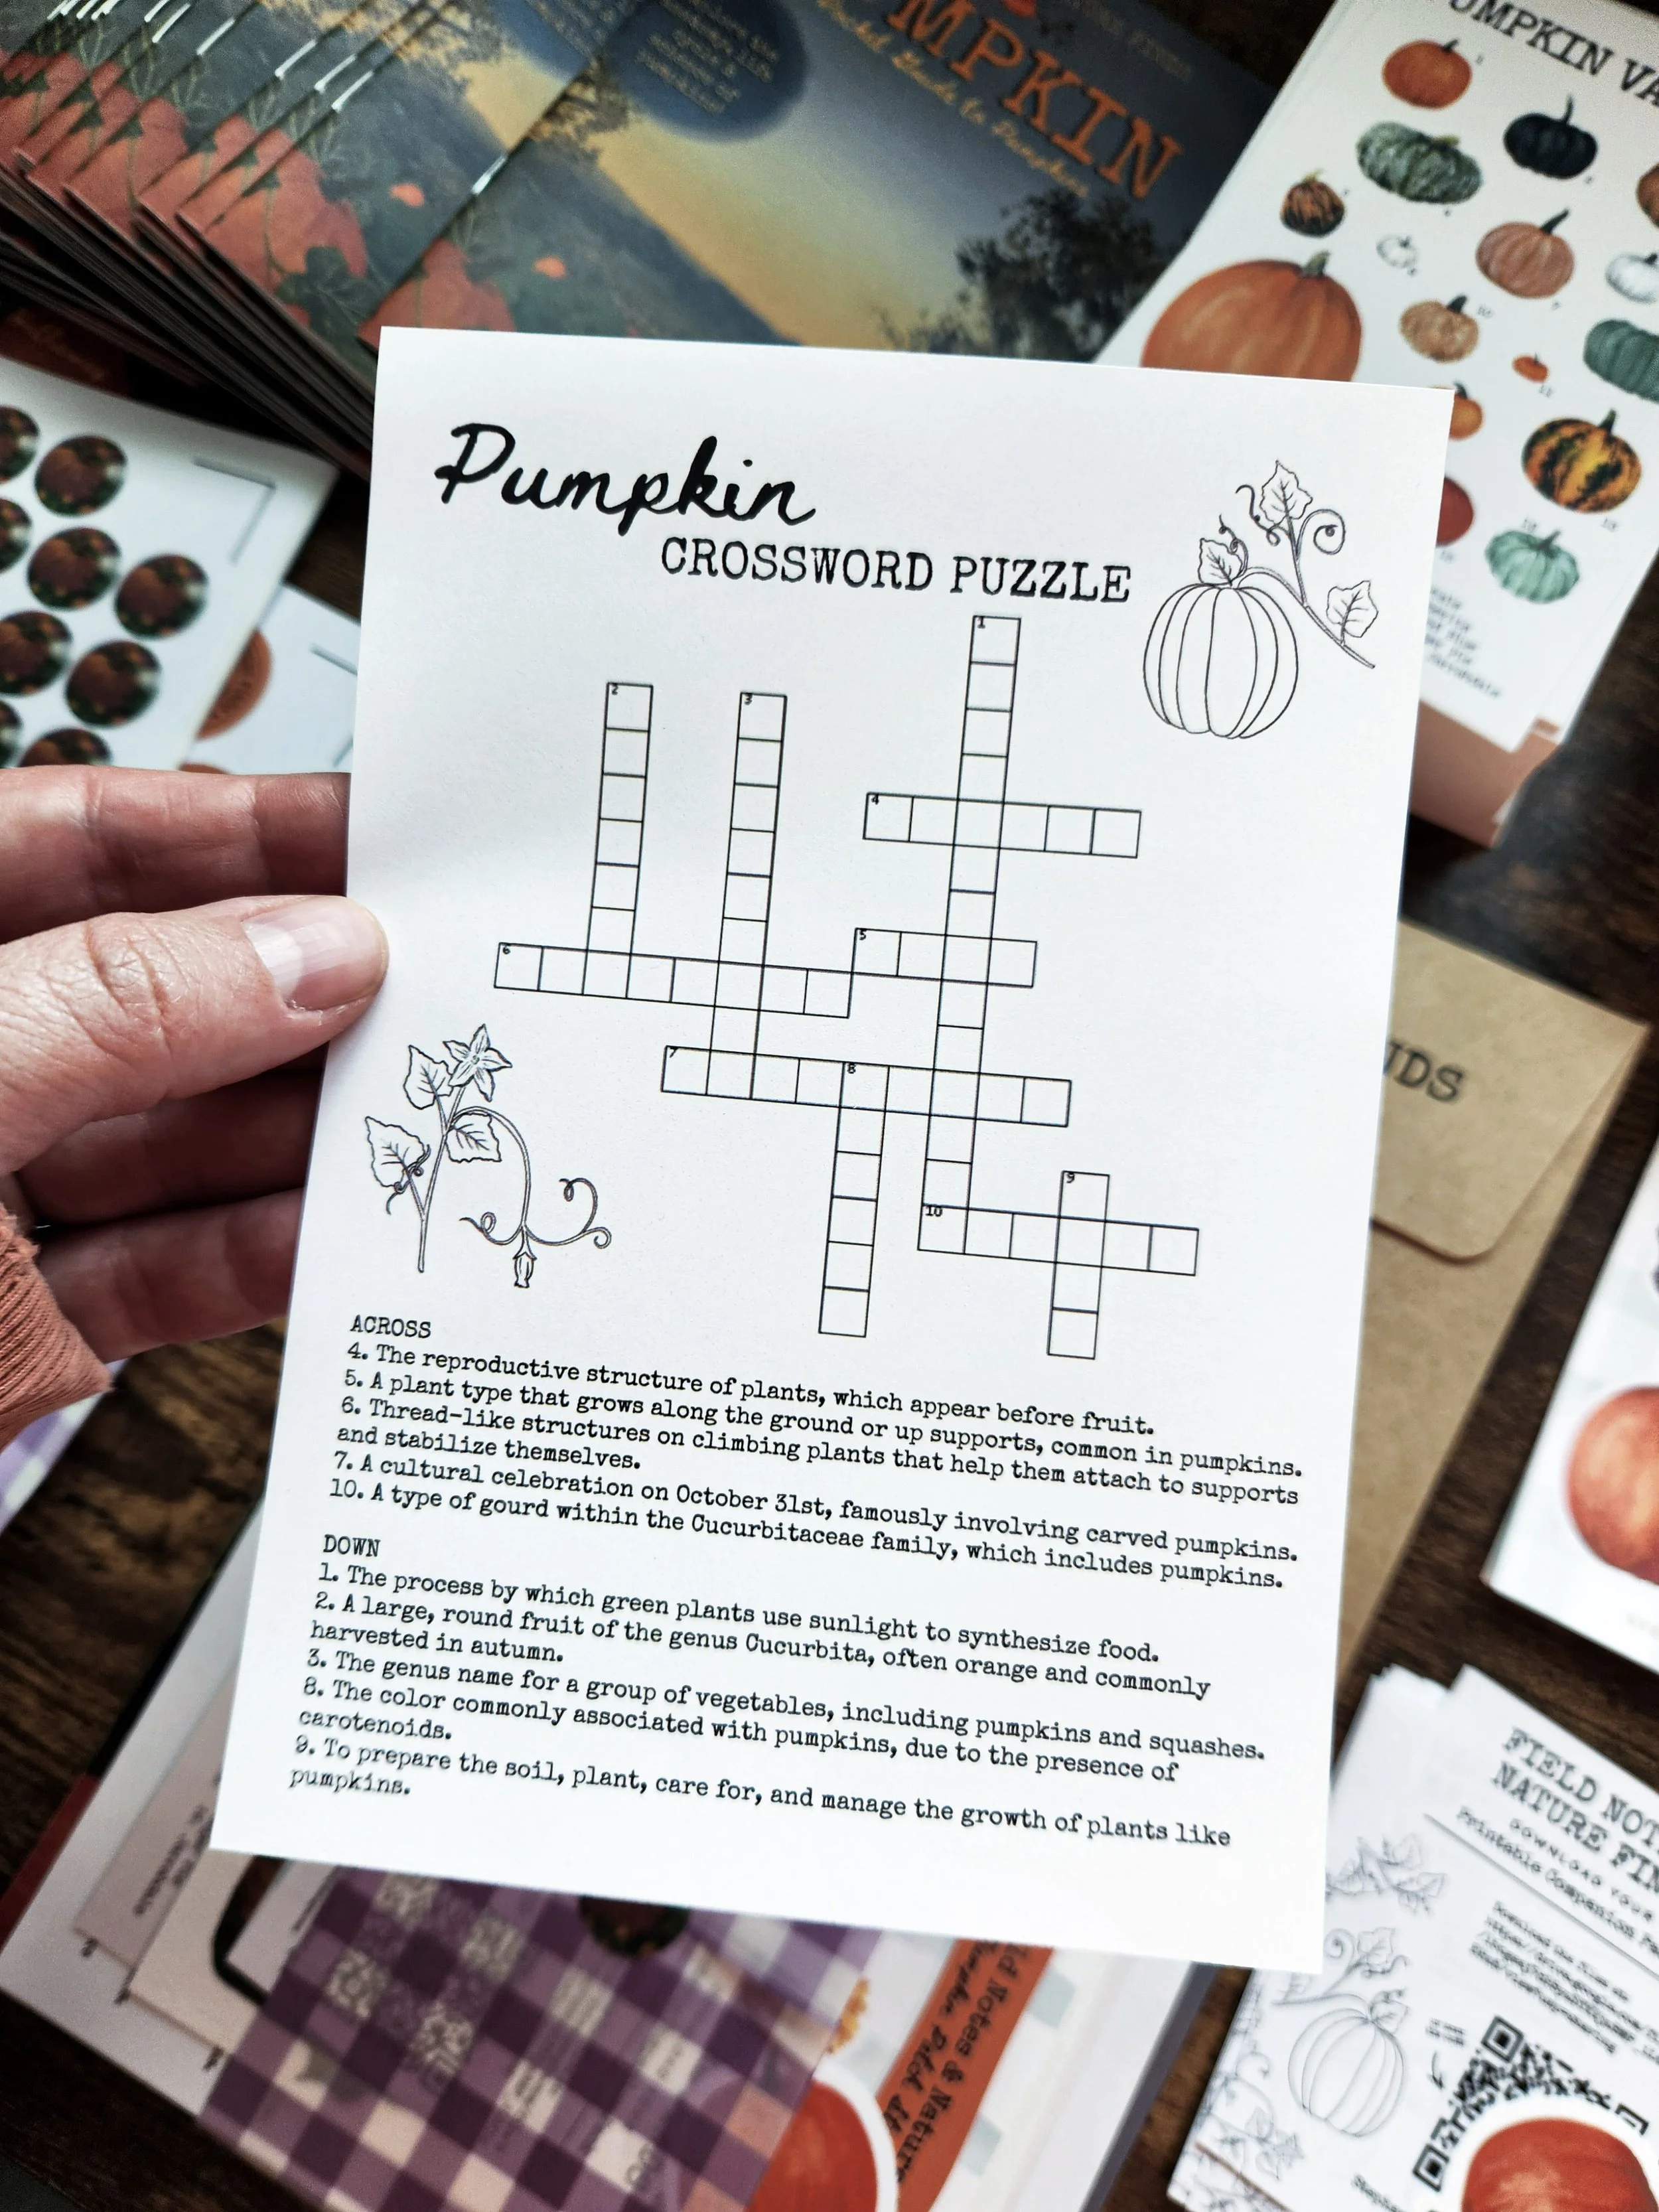 MPKIN
Pocket Guide to Pumpkins
PUMPKIN VA
Pumpkin
CROSSWORD PUZZLE
1
2
3
4
5
6
7
8
9
10
ACROSS
4. The reproductive structure of plants, which appear before fruit.
5. A plant type that grows along the ground or up supports, common in pumpkins.
6. Thread-like structures on climbing plants that help them attach to supports
and stabilize themselves.
7. A cultural celebration on October 31st, famously involving carved pumpkins.
10. A type of gourd within the Cucurbitaceae family, which includes pumpkins.
DOWN
1. The process by which green plants use sunlight to synthesize food.
2. A large, round fruit of the genus Cucurbita, often orange and commonly
harvested in autumn.
3. The genus name for a group of vegetables, including pumpkins and squashes.
8. The color commonly associated with pumpkins, due to the presence of
carotenoids.
9. To prepare the soil, plant, care for, and manage the growth of plants like
pumpkins.
DS
FIELD NOT
NATURE FIN
DOWNLOAD YOUR
Printable Companion Pa
ld Notes & Nature